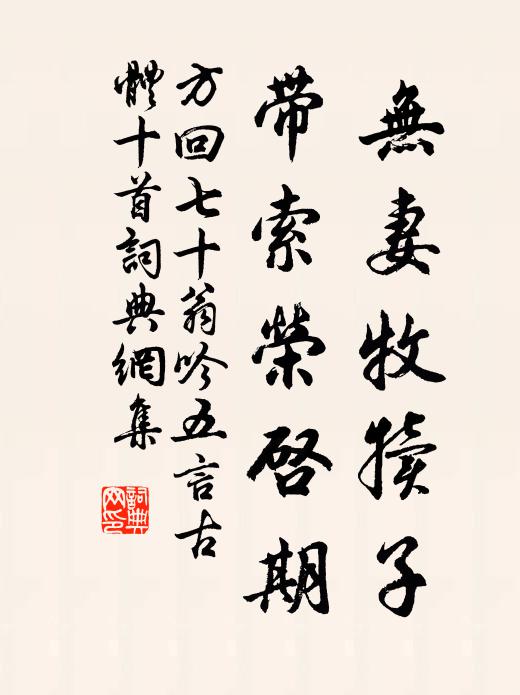 無妻牧犢子
带索榮啓期
方回七十翁吟五言古
體十首詞典網集
詞典網印